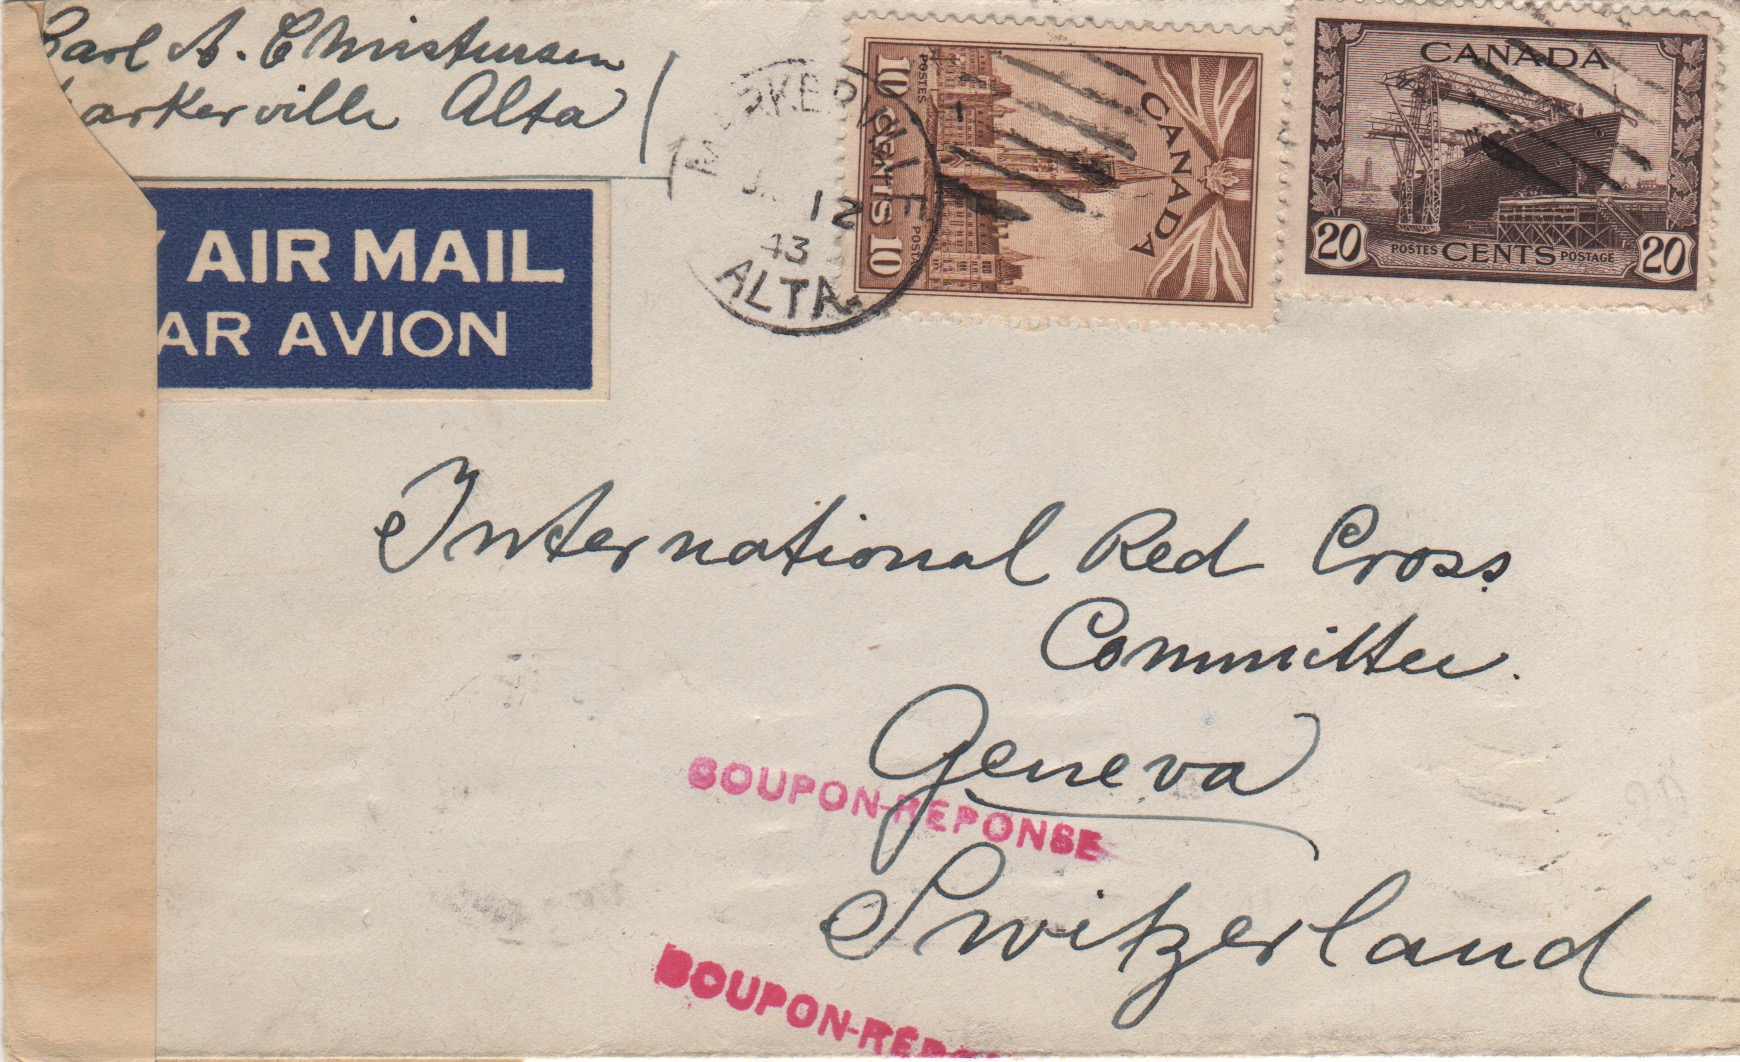 Carl A. Christensen
Markerville Alta
AIR MAIL
PAR AVION
MARKERVILLE
12
43
ALTA.
CANADA
POSTES POSTAGE
10 CENTS 10
CANADA
20 POSTES CENTS POSTAGE 20
International Red Cross
Committee.
Geneva
Switzerland
COUPON-REPONSE
COUPON-REPON